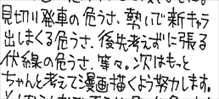 見切り発車の危うさ、勢いで新キャラ
出しまくる危うさ、後先考えずに張る
伏線の危うさ、等々。次はもっと
ちゃんと考えて漫画描くよう努力します。